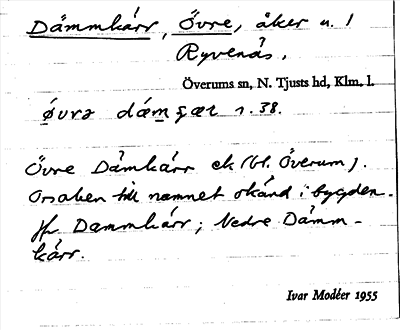 Dämmkärr, Övre, åker u. l
Ryvenäs.
Överums sn, N. Tjusts hd, Klm. l.
Övre Dämkärr ek (bl. Överum).
Orsaken till namnet okänd i bygden.
Jfr Dammkärr; Nedre Dämm-
kärr.
Ivar Modéer 1955